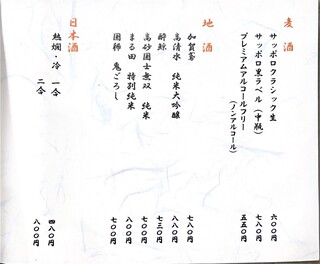 麦酒
サッポロクラシック生 六〇〇円
サッポロ黒ラベル(中瓶) 七八〇円
プレミアムアルコールフリー(ノンアルコール) 五五〇円
地酒
加賀鳶 七八〇円
高清水 純米大吟醸 八八〇円
酔鯨 七三〇円
高砂国士無双 純米 七〇〇円
まる田 特別純米 八〇〇円
国稀 鬼ころし 七〇〇円
日本酒
熱燗・冷 一合 四八〇円
二合 八〇〇円